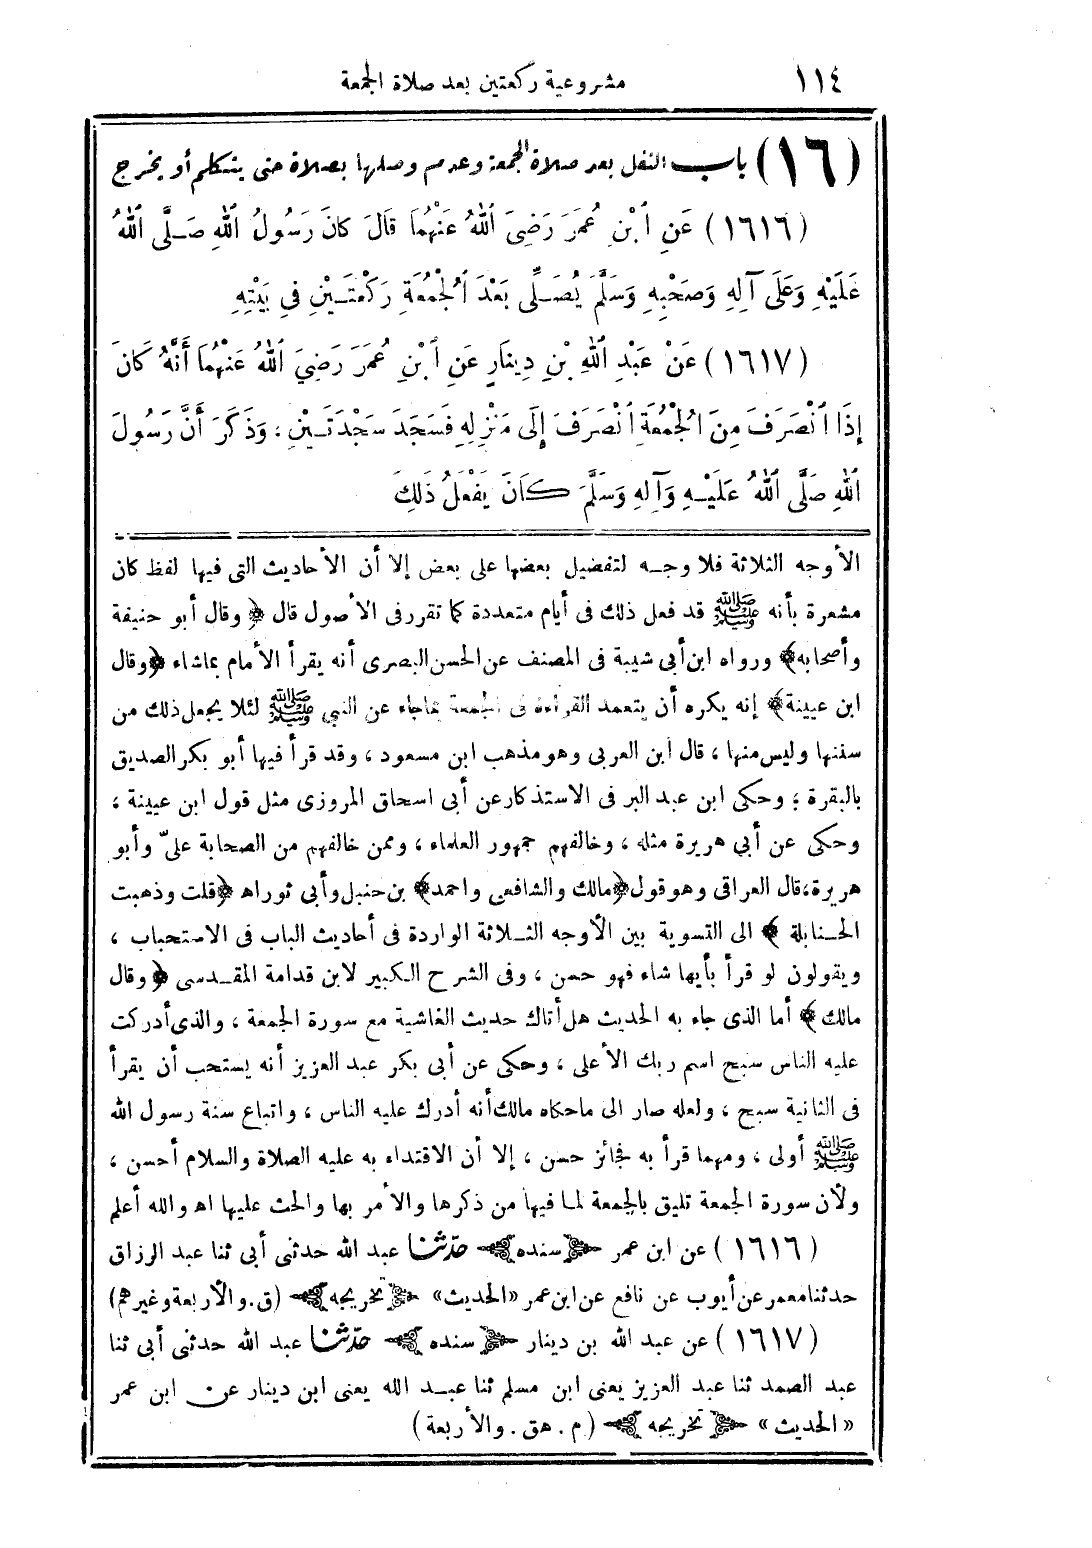 ١١٤ مشروعية ركعتين بعد صلاة الجمعة
(١٦) باب النفل بعد صلاة الجمعة وعدم وصلها بصلاة حتى يتكلم أو يخرج
(١٦١٦) عَنِ ٱبْنِ عُمَرَ رَضِىَ ٱللهُ عَنْهُمَا قَالَ كَانَ رَسُولُ ٱللهِ صَلَّى ٱللهُ
عَلَيْهِ وَعَلَى آلِهِ وَصَحْبِهِ وَسَلَّمَ يُصَلِّى بَعْدَ ٱلْجُمُعَةِ رَكْعَتَيْنِ فِى بَيْتِهِ
(١٦١٧) عَنْ عَبْدِ ٱللهِ بْنِ دِينَارٍ عَنِ ٱبْنِ عُمَرَ رَضِيَ ٱللهُ عَنْهُمَا أَنَّهُ كَانَ
إِذَا ٱنْصَرَفَ مِنَ ٱلْجُمُعَةِ ٱنْصَرَفَ إِلَى مَنْزِلِهِ فَسَجَدَ سَجْدَتَيْنِ ، وَذَكَرَ أَنَّ رَسُولَ
ٱللهِ صَلَّى ٱللهُ عَلَيْهِ وَآلِهِ وَسَلَّمَ كَانَ يَفْعَلُ ذَلِكَ
الأوجه الثلاثة فلا وجه لتفضيل بعضها على بعض إلا أن الأحاديث التى فيها لفظ كان
مشعرة بأنه ﷺ قد فعل ذلك فى أيام متعددة كما تقرر فى الأصول قال ﴿ وقال أبو حنيفة
وأصحابه ﴾ ورواه ابن أبي شيبة فى المصنف عن الحسن البصرى أنه يقرأ الأمام بماشاء ﴿وقال
ابن عيينة﴾ إنه يكره أن يتعمد القراءة فى الجمعة بماجاء عن النبي ﷺ لئلا يجعل ذلك من
سننها وليس منها ، قال ابن العربى وهو مذهب ابن مسعود ، وقد قرأ فيها أبو بكر الصديق
بالبقرة ؛ وحكى ابن عبد البر فى الاستذكار عن أبى اسحاق المروزى مثل قول ابن عيينة ،
وحكى عن أبي هريرة مثله ، وخالفهم جمهور العلماء ، وممن خالفهم من الصحابة علىّ وأبو
هريرة،قال العراقى وهو قول ﴿مالك والشافعى واحمد﴾ بن حنبل وأبى ثوراه ﴿قلت وذهبت
الحنابلة ﴾ الى التسوية بين الأوجه الثلاثة الواردة فى أحاديث الباب فى الاستحباب ،
ويقولون لو قرأ بأيها شاء فهو حسن ، وفى الشرح الكبير لابن قدامة المقدسى ﴿وقال
مالك ﴾ أما الذى جاء به الحديث هل أتاك حديث الغاشية مع سورة الجمعة ، والذى أدركت
عليه الناس سبح اسم ربك الأعلى ، وحكى عن أبى بكر عبد العزيز أنه يستحب أن يقرأ
فى الثانية سبح ، ولعله صار الى ماحكاه مالك أنه أدرك عليه الناس ، واتباع سنة رسول الله
ﷺ أولى ، ومهما قرأ به فجائز حسن ، إلا أن الاقتداء به عليه الصلاة والسلام أحسن ،
ولأن سورة الجمعة تليق بالجمعة لما فيها من ذكرها والأمر بها والحث عليها اه والله أعلم
(١٦١٦) عن ابن عمر ﴿ سنده ﴾ حدّثنا عبد الله حدثنى أبى ثنا عبد الرزاق
حدثنا معمر عن أيوب عن نافع عن ابن عمر «الحديث» ﴿ تخريجه ﴾ (ق . والأربعة وغيرهم)
(١٦١٧) عن عبد الله بن دينار ﴿ سنده ﴾ حدّثنا عبد الله حدثنى أبى ثنا
عبد الصمد ثنا عبد العزيز يعنى ابن مسلم ثنا عبد الله يعنى ابن دينار عن ابن عمر
«الحديث» ﴿ تخريجه ﴾ (م . هق . والأربعة)